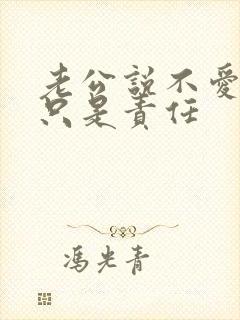 老公說不愛
只是責任
馮光青